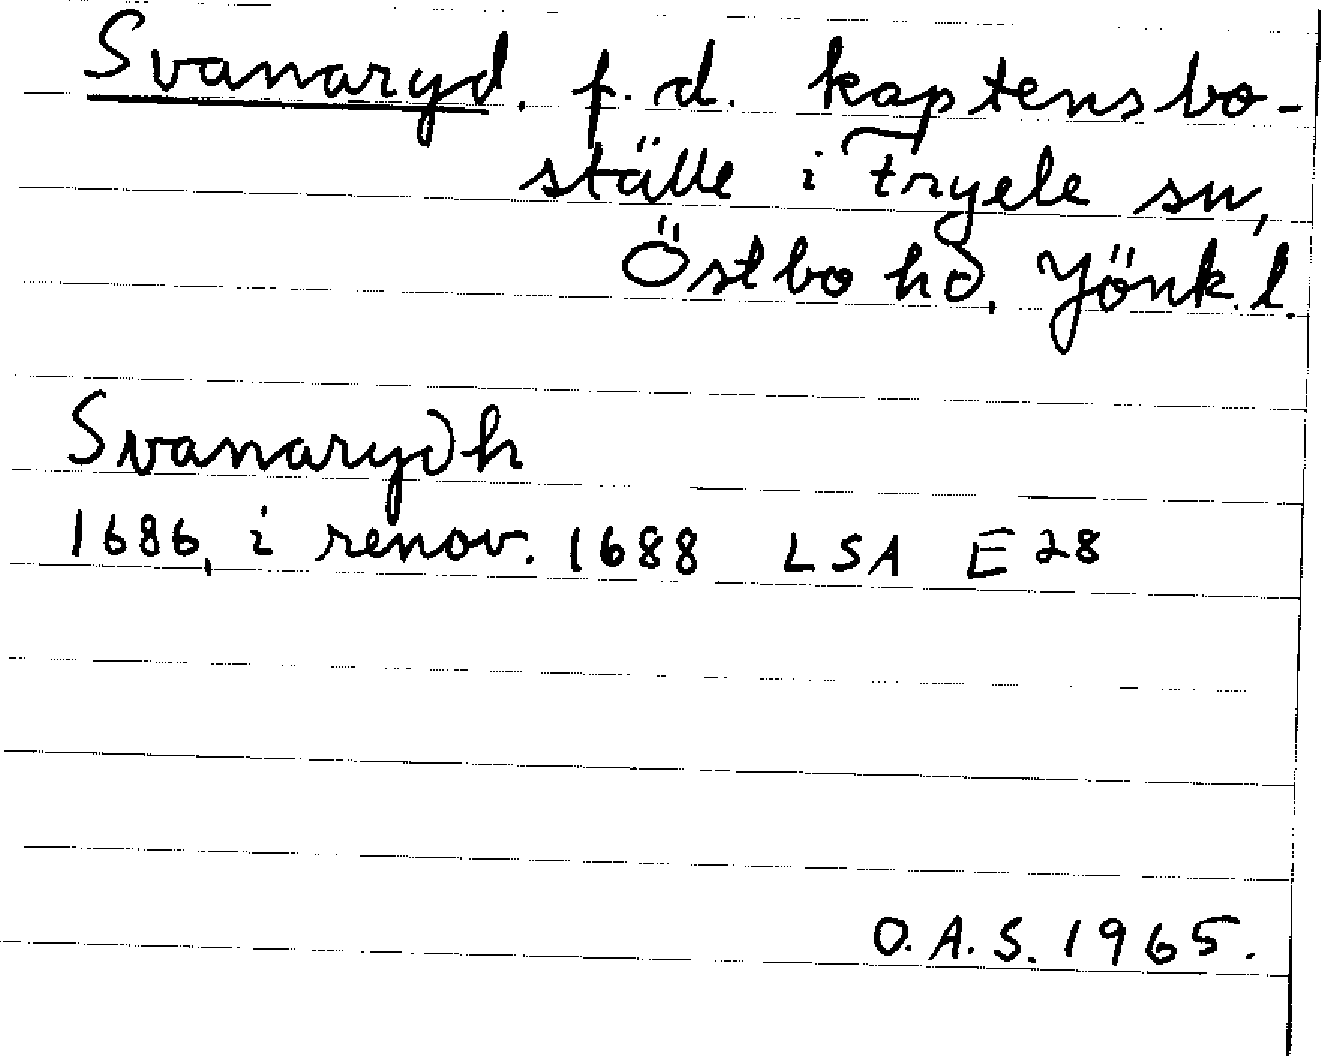 Svanaryd, f.d. kaptensbo-
ställe i Tryele sn,
Östbo hd, Jönk.l.
Svanarydh
1686, i renov. 1688 LSA E 28
O.A.S. 1965.